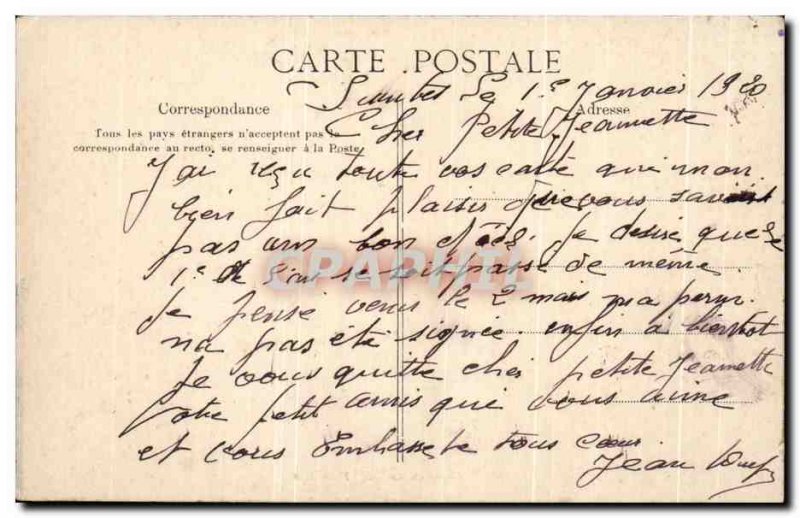 CARTE POSTALE
le 1.e Janvier 1920
Correspondance
Adresse
Tous les pays étrangers n'acceptent pas la
correspondance au recto, se renseigner à la Poste
Cher Petite Jeannette
J'ai reçu toute vos carte qui mon
bien fait plaisir que vous
pas un bon Je desire que le
1.e se soit passe de même
Je pensé venir le 2 mais ma perm.
na pas été signée. enfin à bientot
Je vous quitte cher petite Jeannette
Votre petit amis que vous aime
et vous Embrasse de tous Cœur
Jean
CPAPHIL